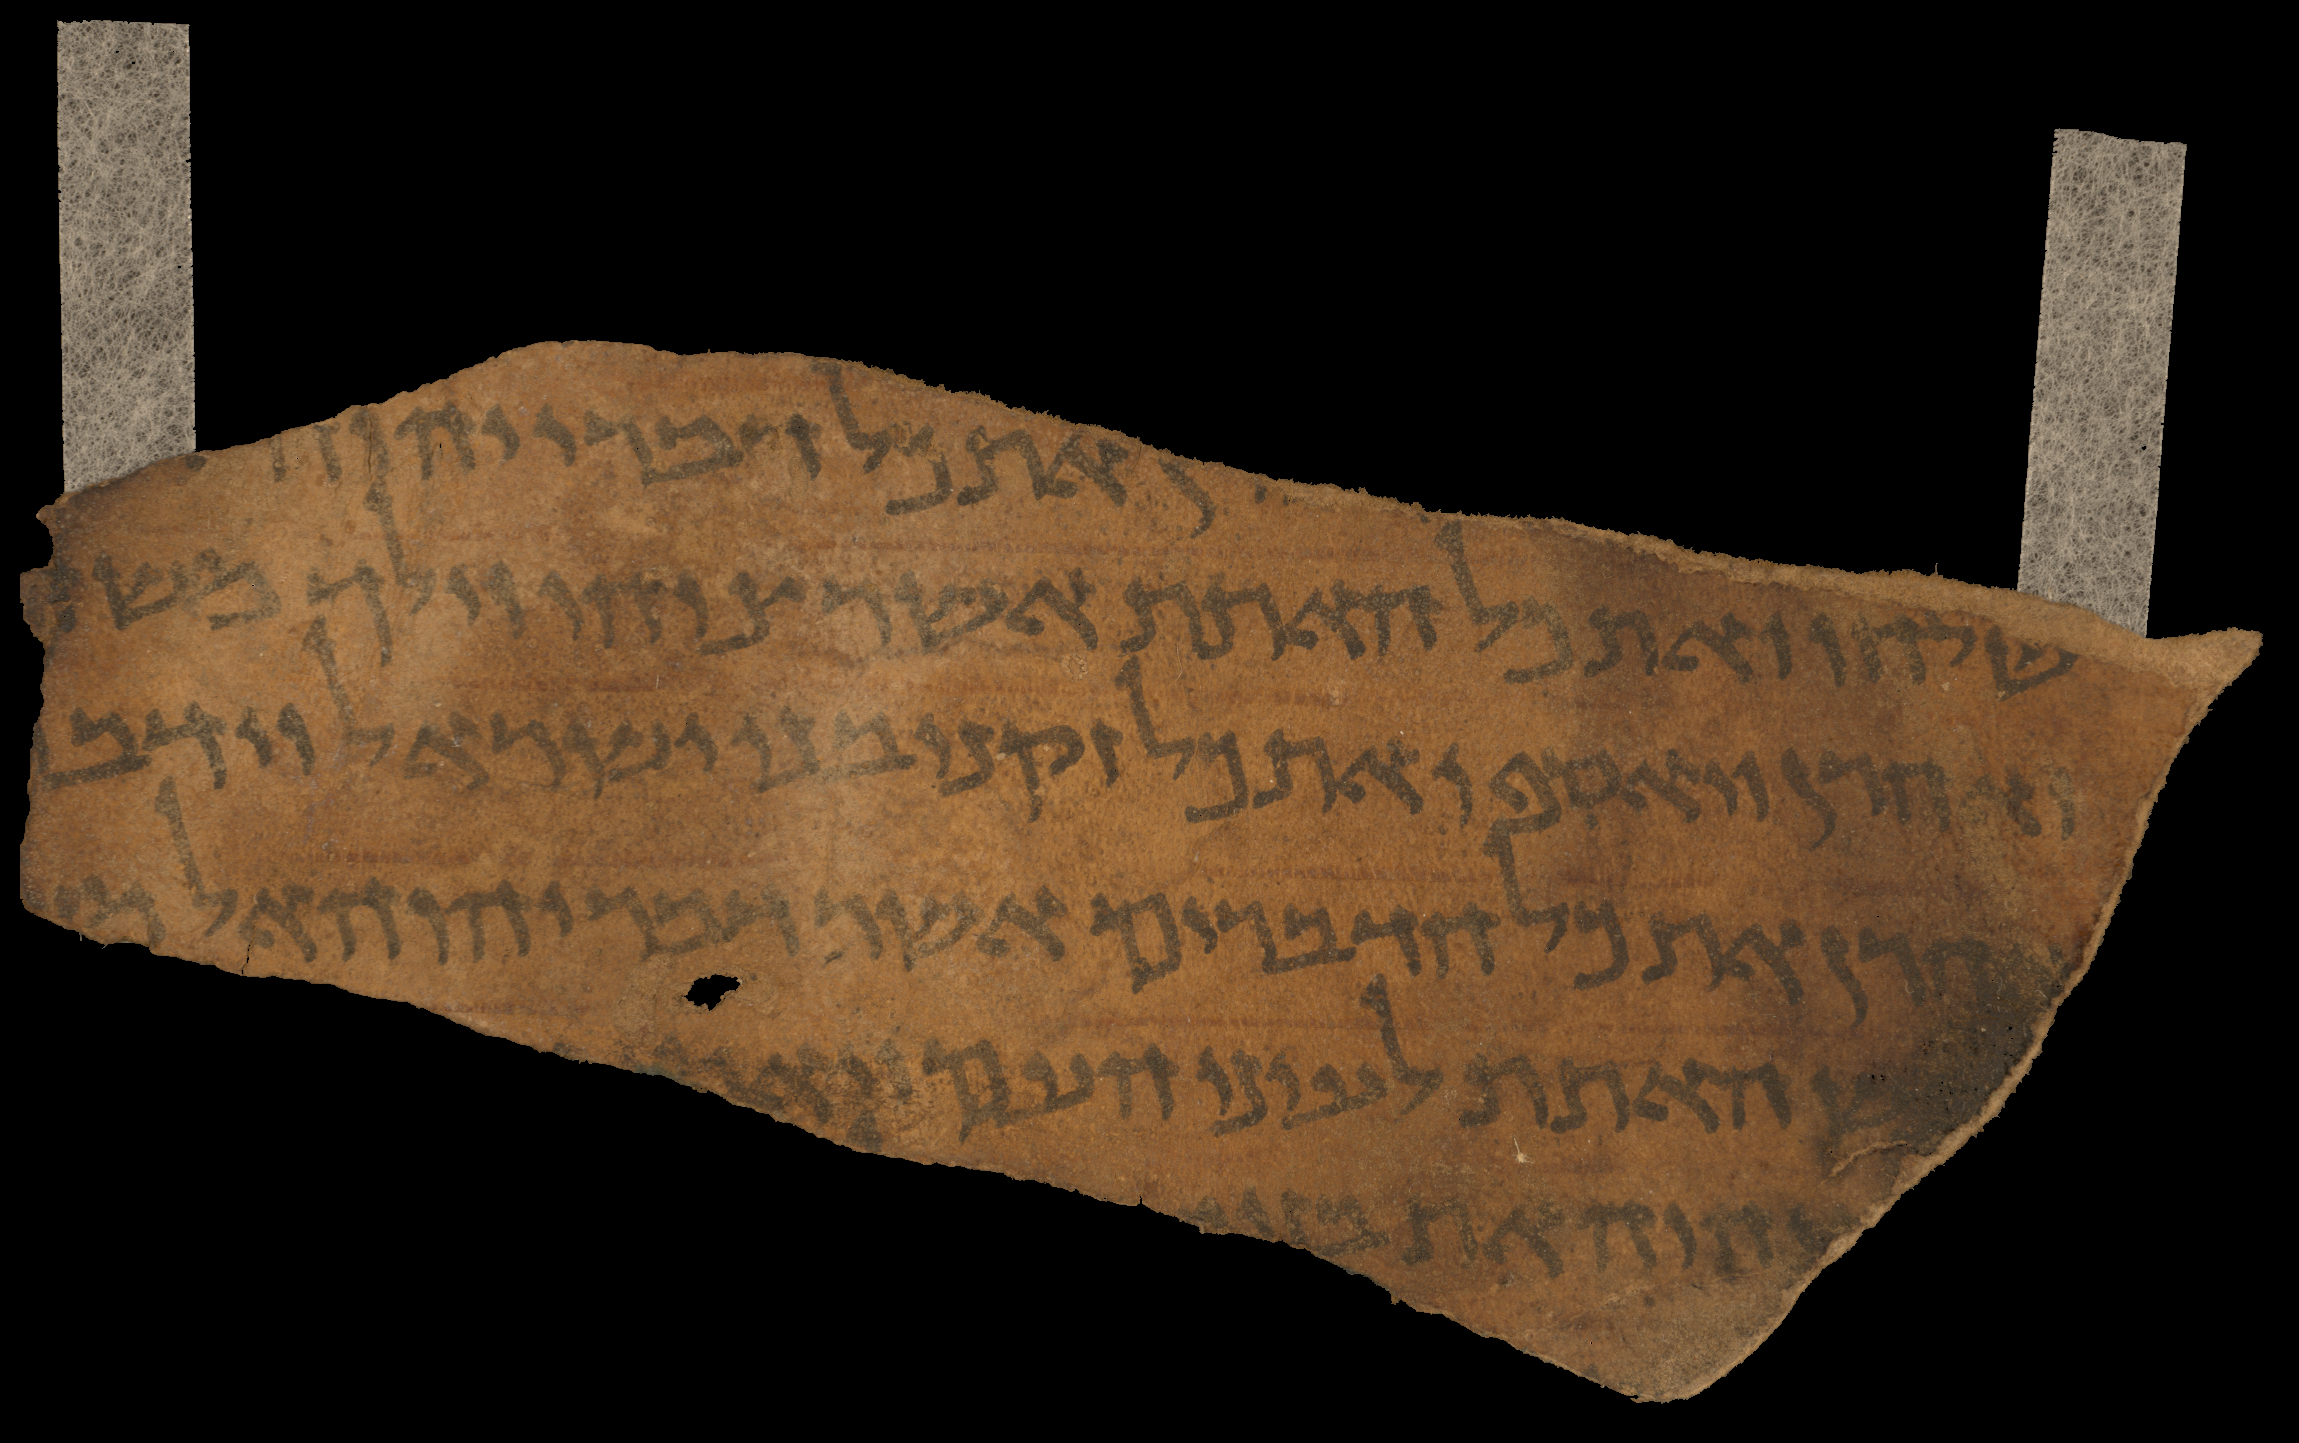 ן את כל דברי יהוה
שלחו ואת כל האתת אשר צוהו וילך משה
ואהרן ויאספו את כל זקני בני ישראל וידב
הרן את כל הדברים אשר דבר יהוה אל מש
ש האתת לעיני העם ויא
יהוה את בני